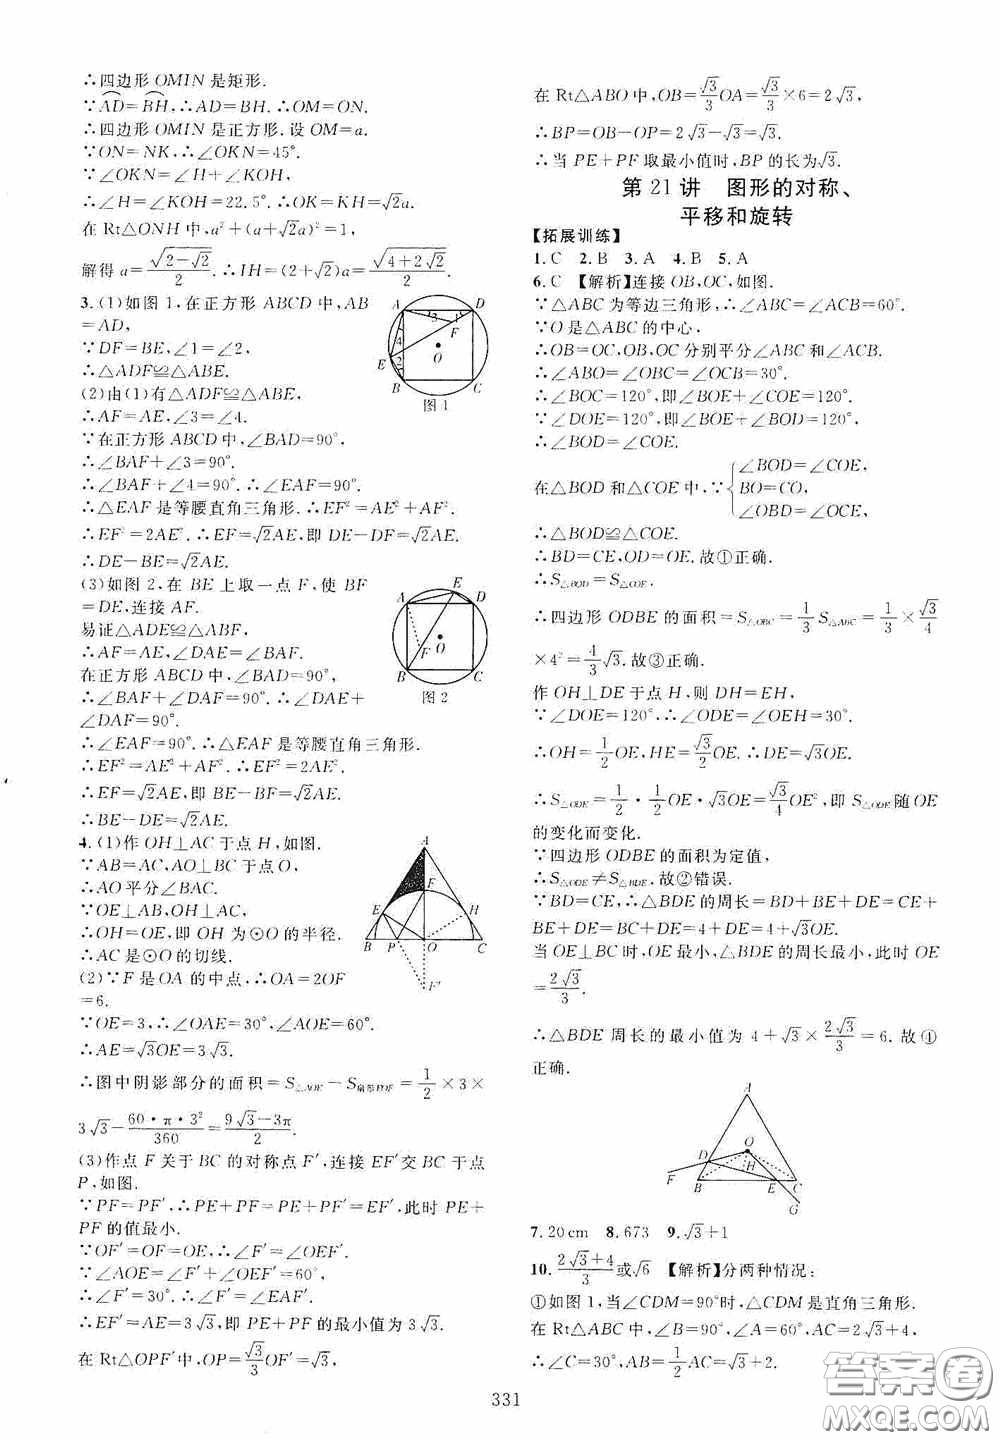 ∴四边形 OMIN 是矩形.
∵AD=BH,∴AD=BH.∴OM=ON.
∴四边形 OMIN 是正方形.设 OM=a.
∵ON=NK,∴∠OKN=45°.
∵∠OKN=∠H+∠KOH,
∴∠H=∠KOH=22.5°.∴OK=KH=√2a.
在 Rt△ONH 中,a²+(a+√2a)²=1,
解得 a=√(2-√2)/2.∴IH=(2+√2)a=√(4+2√2)/2.
3.(1)如图 1,在正方形 ABCD 中,AB
=AD,
∵DF=BE,∠1=∠2,
∴△ADF≌△ABE.
(2)由(1)有△ADF≌△ABE,
∴AF=AE,∠3=∠4.
∵在正方形 ABCD 中,∠BAD=90°,
∴∠BAF+∠3=90°.
∴∠BAF+∠4=90°.∴∠EAF=90°.
∴△EAF 是等腰直角三角形.∴EF²=AE²+AF².
∴EF²=2AE².∴EF=√2AE,即 DE-DF=√2AE.
∴DE-BE=√2AE.
(3)如图 2,在 BE 上取一点 F,使 BF
=DE,连接 AF.
易证△ADE≌△ABF,
∴AF=AE,∠DAE=∠BAF.
在正方形 ABCD 中,∠BAD=90°,
∴∠BAF+∠DAF=90°.∴∠DAE+
∠DAF=90°.
∴∠EAF=90°.∴△EAF 是等腰直角三角形.
∴EF²=AE²+AF².∴EF²=2AE².
∴EF=√2AE,即 BE-BF=√2AE.
∴BE-DE=√2AE.
A D 3 1 F 4 E O 2 B C
图 1
E A D O F B C
图 2
4.(1)作 OH⊥AC 于点 H,如图.
∵AB=AC,AO⊥BC 于点 O,
∴AO 平分∠BAC.
∵OE⊥AB,OH⊥AC,
∴OH=OE,即 OH 为⊙O 的半径.
∴AC 是⊙O 的切线.
(2)∵F 是 OA 的中点,∴OA=2OF
=6.
∵OE=3,∴∠OAE=30°,∠AOE=60°.
∴AE=√3OE=3√3.
∴图中阴影部分的面积=S△AOE-S扇形EOF=1/2×3×
3√3-60·π·3²/360=(9√3-3π)/2.
(3)作点 F 关于 BC 的对称点 F′,连接 EF′交 BC 于点
P,如图.
∵PF=PF′,∴PE+PF=PE+PF′=EF′.此时 PE+
PF 的值最小.
∵OF′=OF=OE,∴∠F′=∠OEF′.
∵∠AOE=∠F′+∠OEF′=60°,
∴∠F′=30°.∴∠F′=∠EAF′.
∴EF′=AE=3√3,即 PE+PF 的最小值为 3√3.
在 Rt△OPF′中,OP=√3/3OF′=√3,
A F E H B P O C F′
在 Rt△ABO 中,OB=√3/3OA=√3/3×6=2√3,
∴BP=OB-OP=2√3-√3=√3.
∴当 PE+PF 取最小值时,BP 的长为√3.
第 21 讲 图形的对称、
平移和旋转
【拓展训练】
1.C 2.B 3.A 4.B 5.A
6.C 【解析】连接 OB,OC,如图.
∵△ABC 为等边三角形,∴∠ABC=∠ACB=60°.
∵O 是△ABC 的中心,
∴OB=OC,OB,OC 分别平分∠ABC 和∠ACB.
∴∠ABO=∠OBC=∠OCB=30°.
∴∠BOC=120°,即∠BOE+∠COE=120°.
∵∠DOE=120°,即∠BOE+∠BOD=120°,
∴∠BOD=∠COE.
在△BOD 和△COE 中,∵{∠BOD=∠COE,
BO=CO,
∠OBD=∠OCE,
∴△BOD≌△COE.
∴BD=CE,OD=OE.故①正确.
∴S△BOD=S△COE.
∴四边形 ODBE 的面积=S△OBC=1/3S△ABC=1/3×√3/4
×4²=4/3√3.故③正确.
作 OH⊥DE 于点 H,则 DH=EH,
∵∠DOE=120°,∴∠ODE=∠OEH=30°.
∴OH=1/2OE,HE=√3/2OE.∴DE=√3OE.
∴S△ODE=1/2·1/2OE·√3OE=√3/4OE²,即 S△ODE随 OE
的变化而变化.
∵四边形 ODBE 的面积为定值,
∴S△ODE≠S△BDE.故②错误.
∵BD=CE,∴△BDE 的周长=BD+BE+DE=CE+
BE+DE=BC+DE=4+DE=4+√3OE.
当 OE⊥BC 时,OE 最小,△BDE 的周长最小,此时 OE
=2√3/3.
∴△BDE 周长的最小值为 4+√3×2√3/3=6.故④
正确.
A O D H F B E C G
7.20 cm 8.673 9.√3+1
10.(2√3+4)/3或√6 【解析】分两种情况:
①如图 1,当∠CDM=90°时,△CDM 是直角三角形.
在 Rt△ABC 中,∠B=90°,∠A=60°,AC=2√3+4,
∴∠C=30°,AB=1/2AC=√3+2.
331
答案圈
MXQE.COM